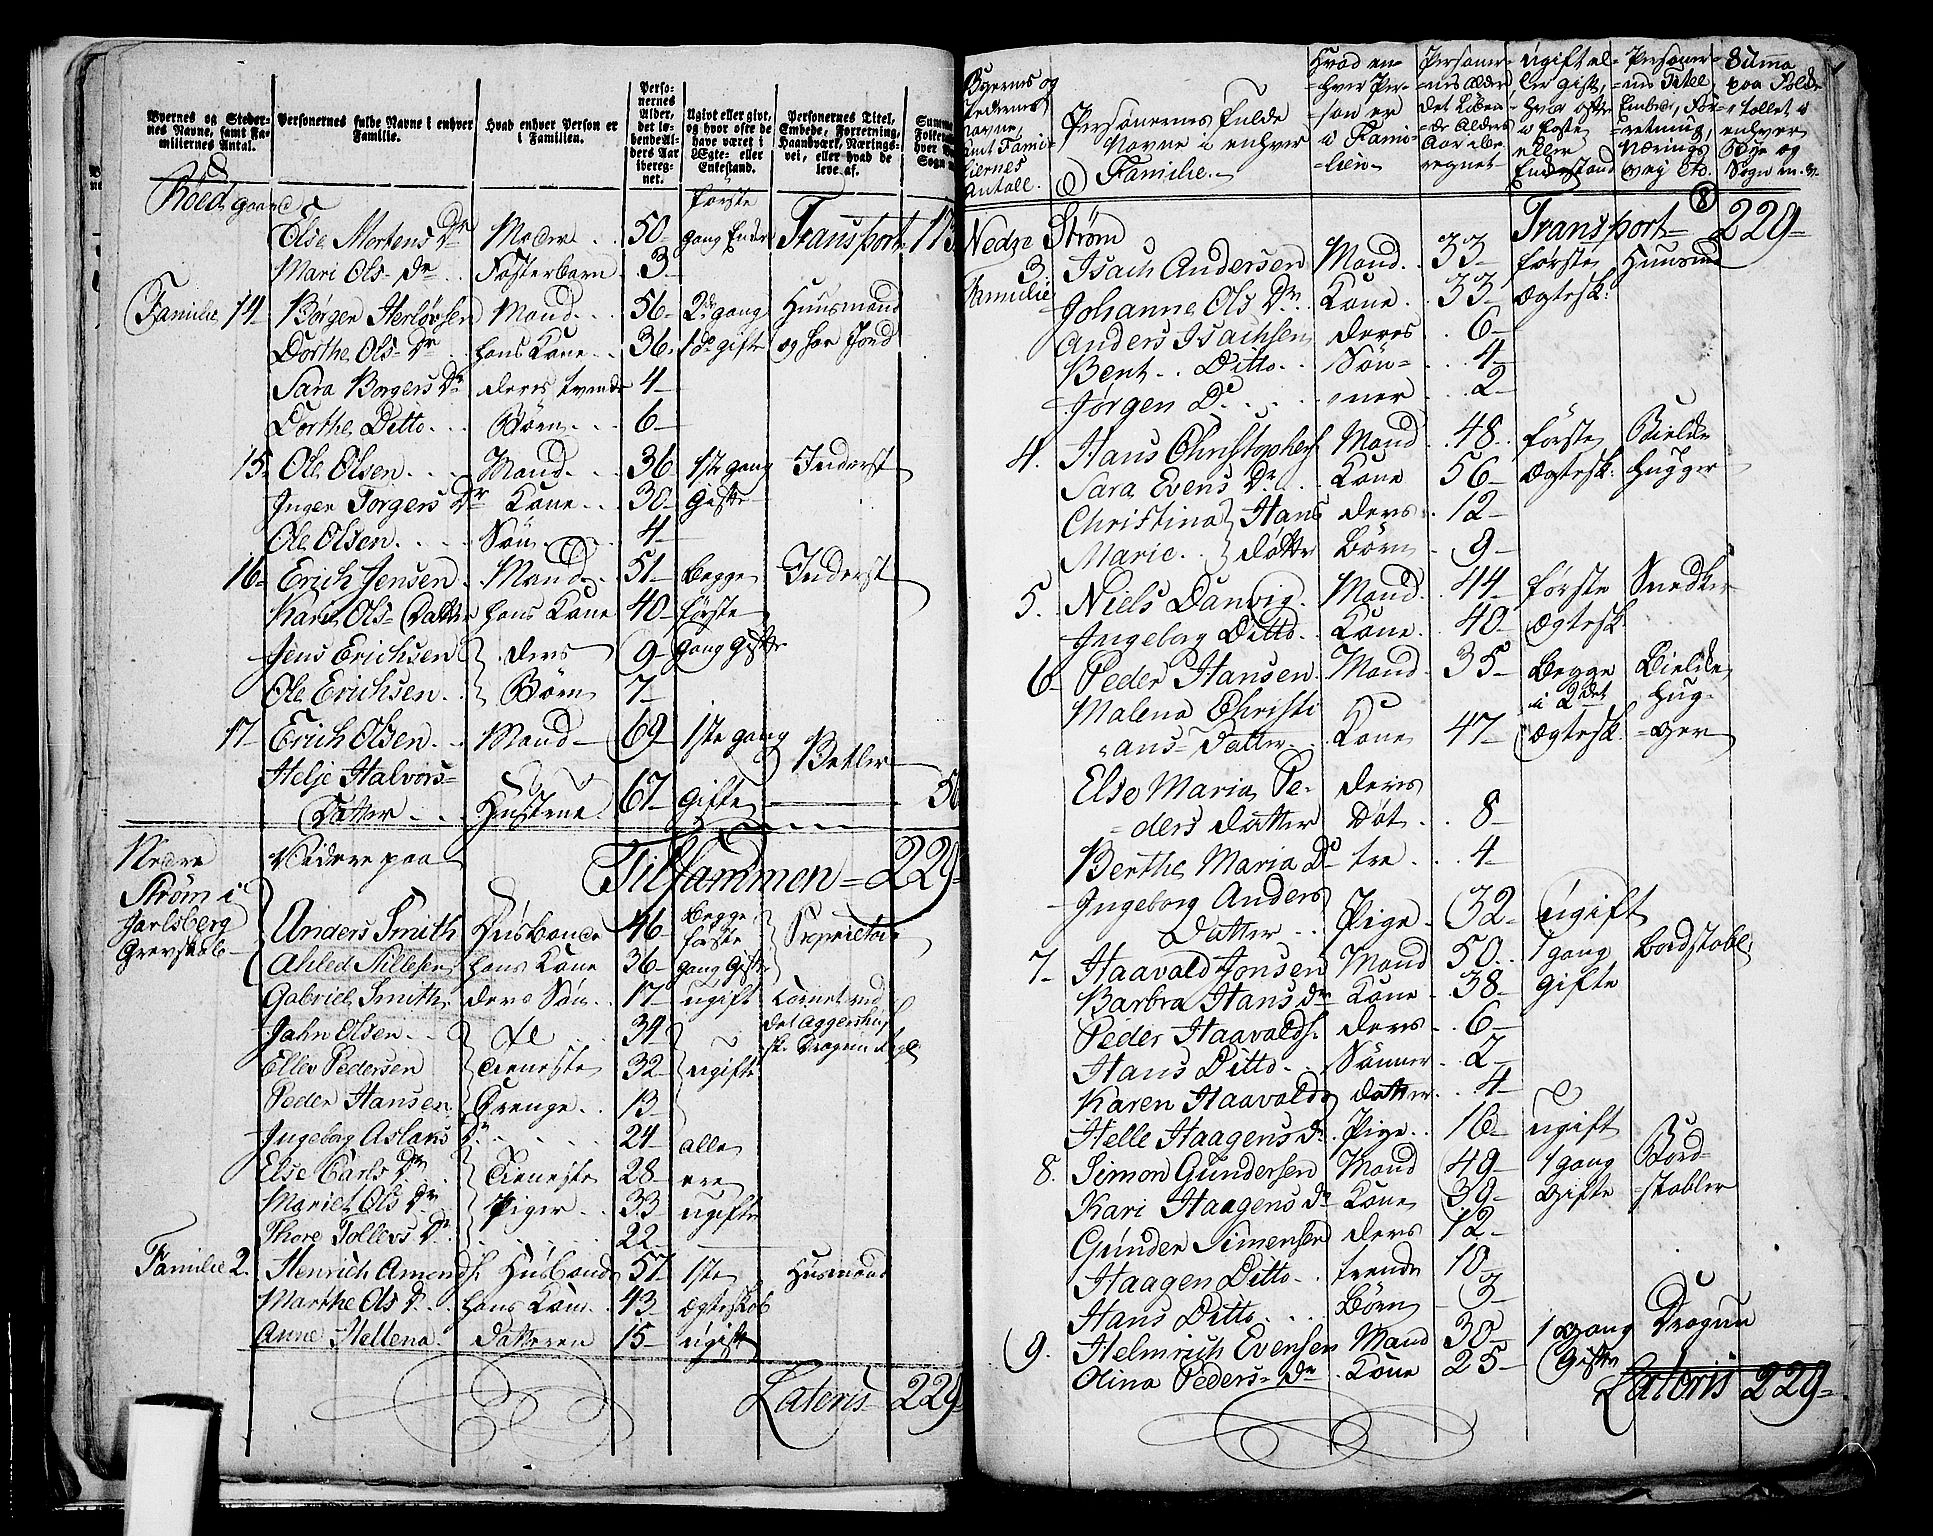 Byernes og Steder-
nes Navne, samt Fa-
miliernes Antal.
Personernes fulde Navne i enhver
Familie.
Hvad enhver Person er
i Familien.
Perso-
nernes
Alder,
det lø-
bende Al-
ders Aar
ibereg-
net.
Ugivt eller givt,
og hvor ofte de
have været i
Ægte- eller
Enkestand.
Personernes Titel,
Embede, Forretning,
Haandværk, Nærings-
vei, eller hvad de
leve af.
Else Mortens Dr Moder 50 første gang Enke Transport 173
Mari Ols Dr Fosterbarn 3
Familie 14 Børger Herlovsen Mand 56 2den gang Huusmand
Dorthe Ols Dr hans Kone 36 1de gift og har Jord
Sara Borgers Dr deres tvende 4
Dorthe Ditto Børn 6
15 Ole Olsen Mand 36 1ste gang Inderst
Inger Torgers Dr Kone 30 Gifte
Ole Olsen Søn 4
16 Erich Jensen Mand 51 Begge Inderst
Kari Ols Datter hans Kone 40 første
Jens Erichsen deres 9 gang Gifte
Ole Erichsen Børn 7
17 Erich Olsen Mand 69 1ste gang Betler
Helje Halvors
Datter Hustrue 67 gifte
Nedre
Strøm i
Jarlsberg
Grevskab
Videre paa Tilsammen 229
Anders Smith Huusbonde 46 Begge første Proprietair
hans Kone 36 gang Gifte
Gabriel Smith deres Søn 17 ugift
Jahn Olsen 34
Ellev Pedersen Tieneste 32 ugifte
Peder Hansen Drenge 13
Ingeborg Aslaks Dr 24 alle
Else Carls Dr Tieneste 28 ere
Mariet Ols Dr Piger 33 ugifte
Thore Tollevs Dr 22
Familie 2 Henrich Amonds. Husbonde 57 1ste Husmand
Marthe Ols Dr hans Kone 43 Ægteskab
Anne Hellena Datteren 15 ugift
Lateris 229
Byernes og
Stedernes
Navne,
samt Fami-
liernes
Antall.
Personernes Fulde
Navne i enhver
Familie.
Hvad en-
hver Per-
son er
i Fami-
lien
Personer-
nes Alder
det løben-
de Alders
Aar ibe-
regnet
Ugift el-
ler Gift,
hvor ofte
i Egte
eller
Enkestand
Personer-
nes Titel
Embede, For-
retning,
Nærings
vej etc.
Summa
paa Folke
Tallet i
enhver
Bye og
Sogn
8
Nedre Strøm Transport 229
3. Isach Andersen Mand 33 første Huusmd
Familie Johanne Ols Dr Kone 33 Ægtesk:
Anders Isachsen deres 6
Bent Ditto Søn- 4
Jørgen Do ner 2
4. Hans Christophers Mand 48 første Bielke
Sara Evens Dr Kone 56 Ægtesk: Hugger
Christina Hans deres 12
Marie døttr Børn 9
5. Niels Danvig Mand 44 første Snedker
Ingeborg Ditto Kone 40 Ægtesk
6 Peder Hansen Mand 35 Begge Bielke
Malena Christi i 2det Hug-
ans Datter Kone 47 Ægtesk. ger
Else Maria Pe- deres
ders datter Døt 8
Berthe Maria Do tre 4
Ingeborg Anders
Datter Pige 32 ugift
7 Haavald Jonsen Mand 50 1 gang Bordstabl
Barbra Hans dr Kone 38 gifte
Peder Haavalds. deres 6
Hans Ditto Sønner 2
Karen Haavalds datter 4
Helle Haagens dr Pige 16 ugift
8. Simon Gundersen Mand 49 1 gang Bord-
Kari Haagens dr Kone 39 gifte stabler
Gunder Simensen deres 12
Haagen Ditto trende 10
Hans Ditto Børn 3
9. Helmrich Evensen Mand 30 1 gang Dragun
Olina Peders dr Kone 25 Gifte
Lateris 229